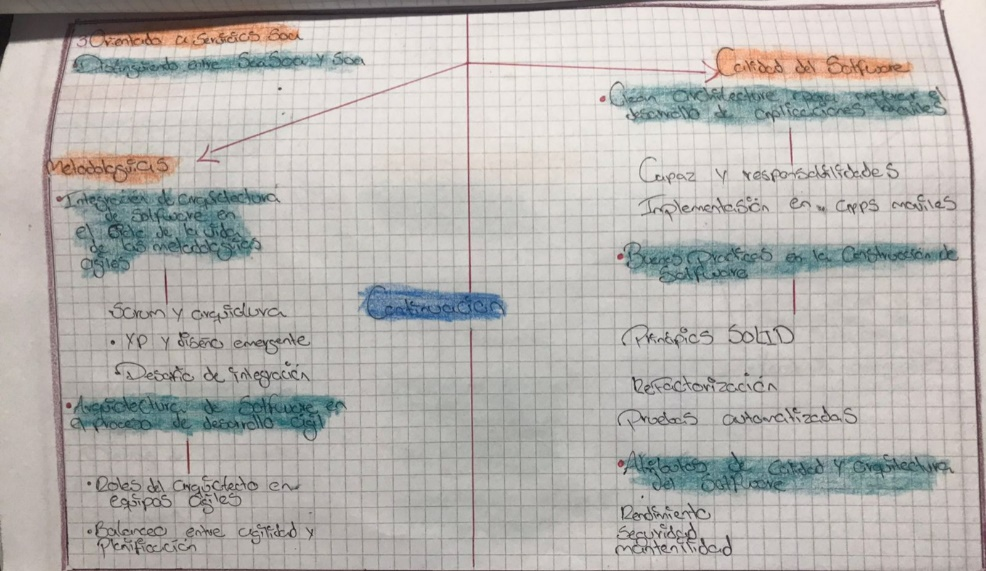 3 Orientado a Servicios Soa
Distinguiendo entre SeaSoa y Soa
Metodologicas
• Integracion de arquitectura
de Software en
el ciclo de la vida
de las metodologias
agiles
Scrum y arquidura
• XP y diseño emergente
• Desafio de integración
• Arquitectura de Software en
el proceso de desarrollo agil
• Roles del arquitecto en
equipos agiles
• Balanceo entre agilidad y
Planificación
Continuación
Calidad del Software
• Clean architecture para el
desarrollo de aplicaciones moviles
Capaz y responsabilidades
Implementasión en apps moviles
• Buenas Practicas en la Construccion de
Software
Prinápics SOLID
Refactorización
Pruebas automatizadas
• Atributos de Calidad y arquitectura
del Software
Rendimiento
Seguridad
mantenilidad